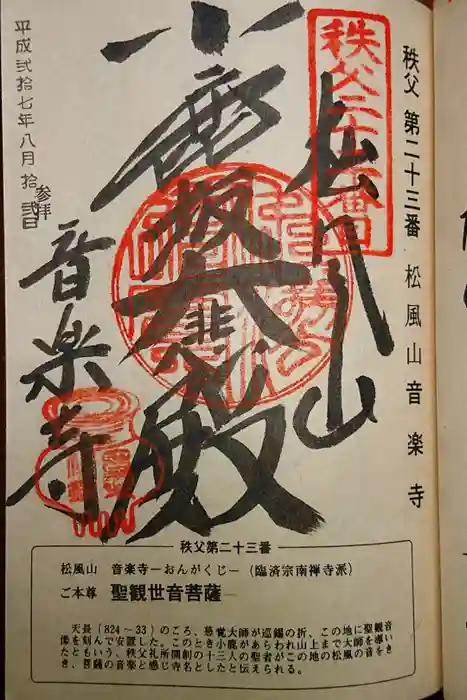 秩父 第二十三番 松風山 音楽寺
秩父二十三番
松風山
小鹿坂大悲殿
音楽寺
平成弐拾七年八月拾弐日
参拝
秩父第二十三番
松風山 音楽寺−おんがくじ−（臨済宗南禅寺派）
ご本尊 聖観世音菩薩
天長（824〜33）のころ、慈覚大師が巡錫の折、この地に聖観音
像を刻んで安置した。このとき小鹿があらわれ山上まで大師を導い
たともいう。秩父札所開創の十三人の聖者がこの地の松風の音をき
き、菩薩の音楽と感じ寺名としたと伝えられる。